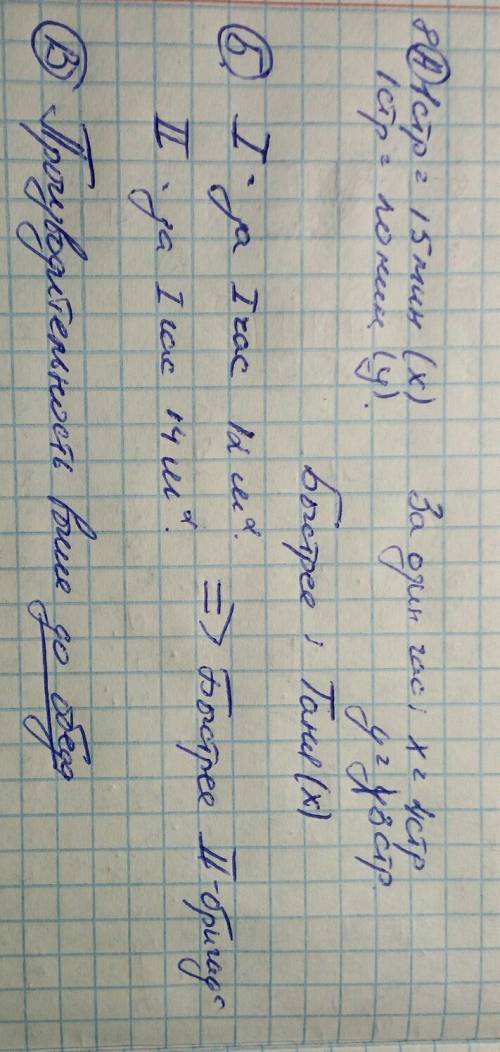 8 А 1стр = 15 мин (х) За один час; х = 4стр
1стр = 20 мин (у). у = 3стр.
Быстрее; Таня (х)
Б I - за 1 час 12 м².
II - за 1 час 14 м². => Быстрее II-бригада
В Производительность выше до обеда